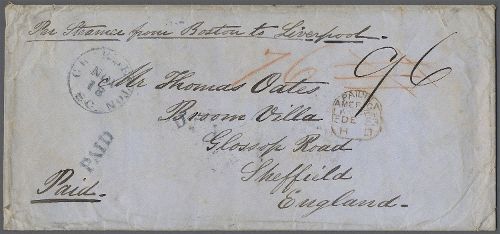 Per Steamer from Boston to Liverpool.
76
96
Mr Thomas Oates,
Broom Villa
Glossop Road
Sheffield
England.
PAID
Paid.
PAID
AMERICA
DE